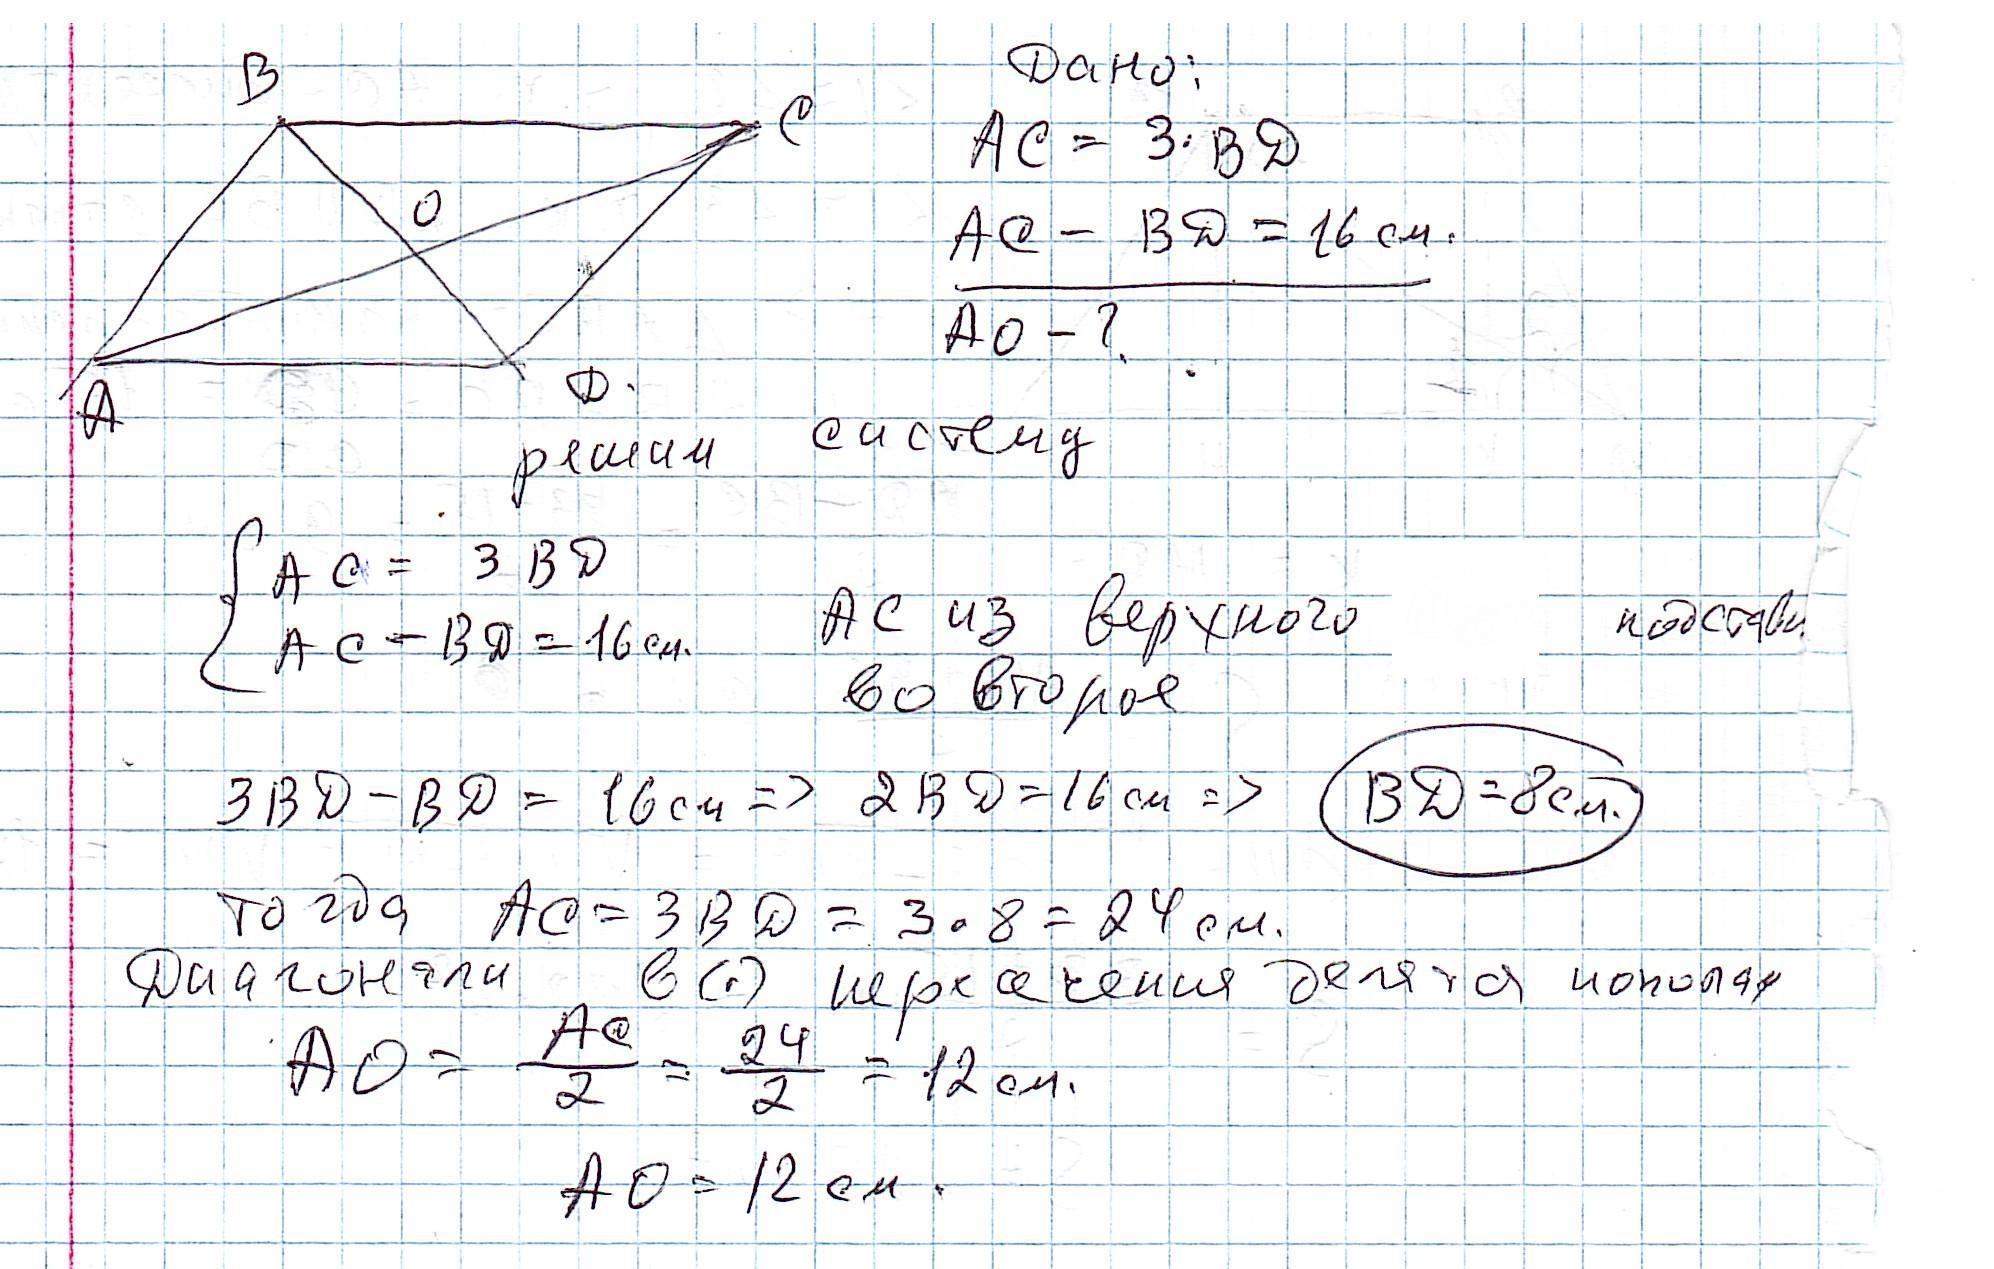 B
C
O
A
D.
Дано:
AC = 3·BD
AC - BD = 16 см.
AO - ?
решим систему
AC = 3 BD
AC - BD = 16 см.
AC из верхного подстави
во второе
3BD - BD = 16 см => 2BD = 16 см => BD = 8 см.
тогда AC = 3BD = 3·8 = 24 см.
Диагонали в (·) пересечения делятся пополам
AO = AC/2 = 24/2 = 12 см.
AO = 12 см.